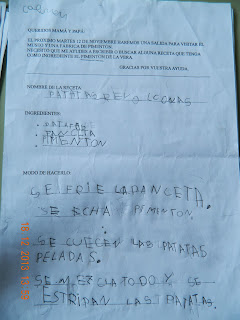 CARMEN
QUERIDOS MAMÁ Y PAPÁ:
EL PRÓXIMO MARTES 12 DE NOVIEMBRE HAREMOS UNA SALIDA PARA VISITAR EL
MUSEO Y UNA FÁBRICA DE PIMENTÓN.
NECESITO QUE ME AYUDÉIS A ESCRIBIR O BUSCAR ALGUNA RECETA QUE TENGA
COMO INGREDIENTE EL PIMENTÓN DE LA VERA.
GRACIAS POR VUESTRA AYUDA.
NOMBRE DE LA RECETA:
PATATAS REVOLCONAS
INGREDIENTES:
PATATAS
PANCETA
PIMENTON
MODO DE HACERLO:
SE FRIE LA PANCETA.
SE ECHA PIMENTON.
SE CUECEN LAS PATATAS
PELADAS.
SE MEZCLA TODO Y SE
ESTRIPAN LAS PATATAS.